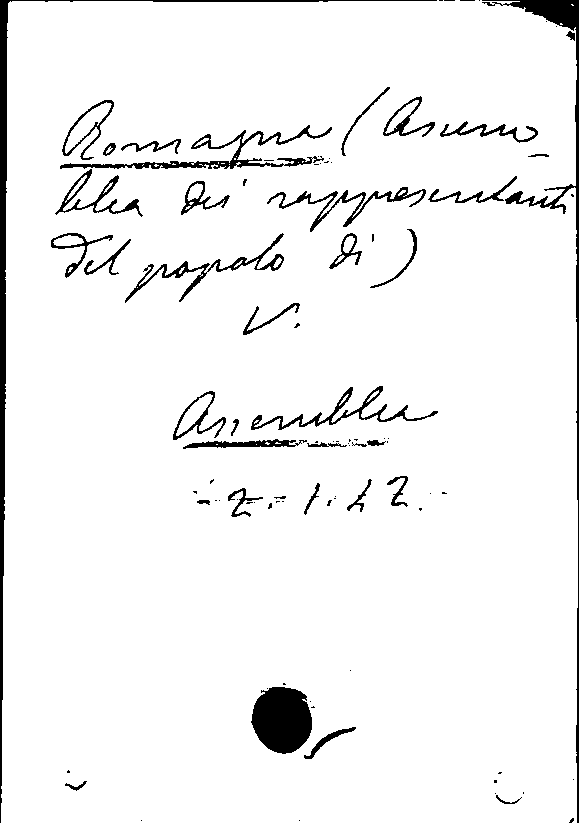 Romagna (Assem-
blea dei rappresentanti
del popolo di)
V.
Assemblea